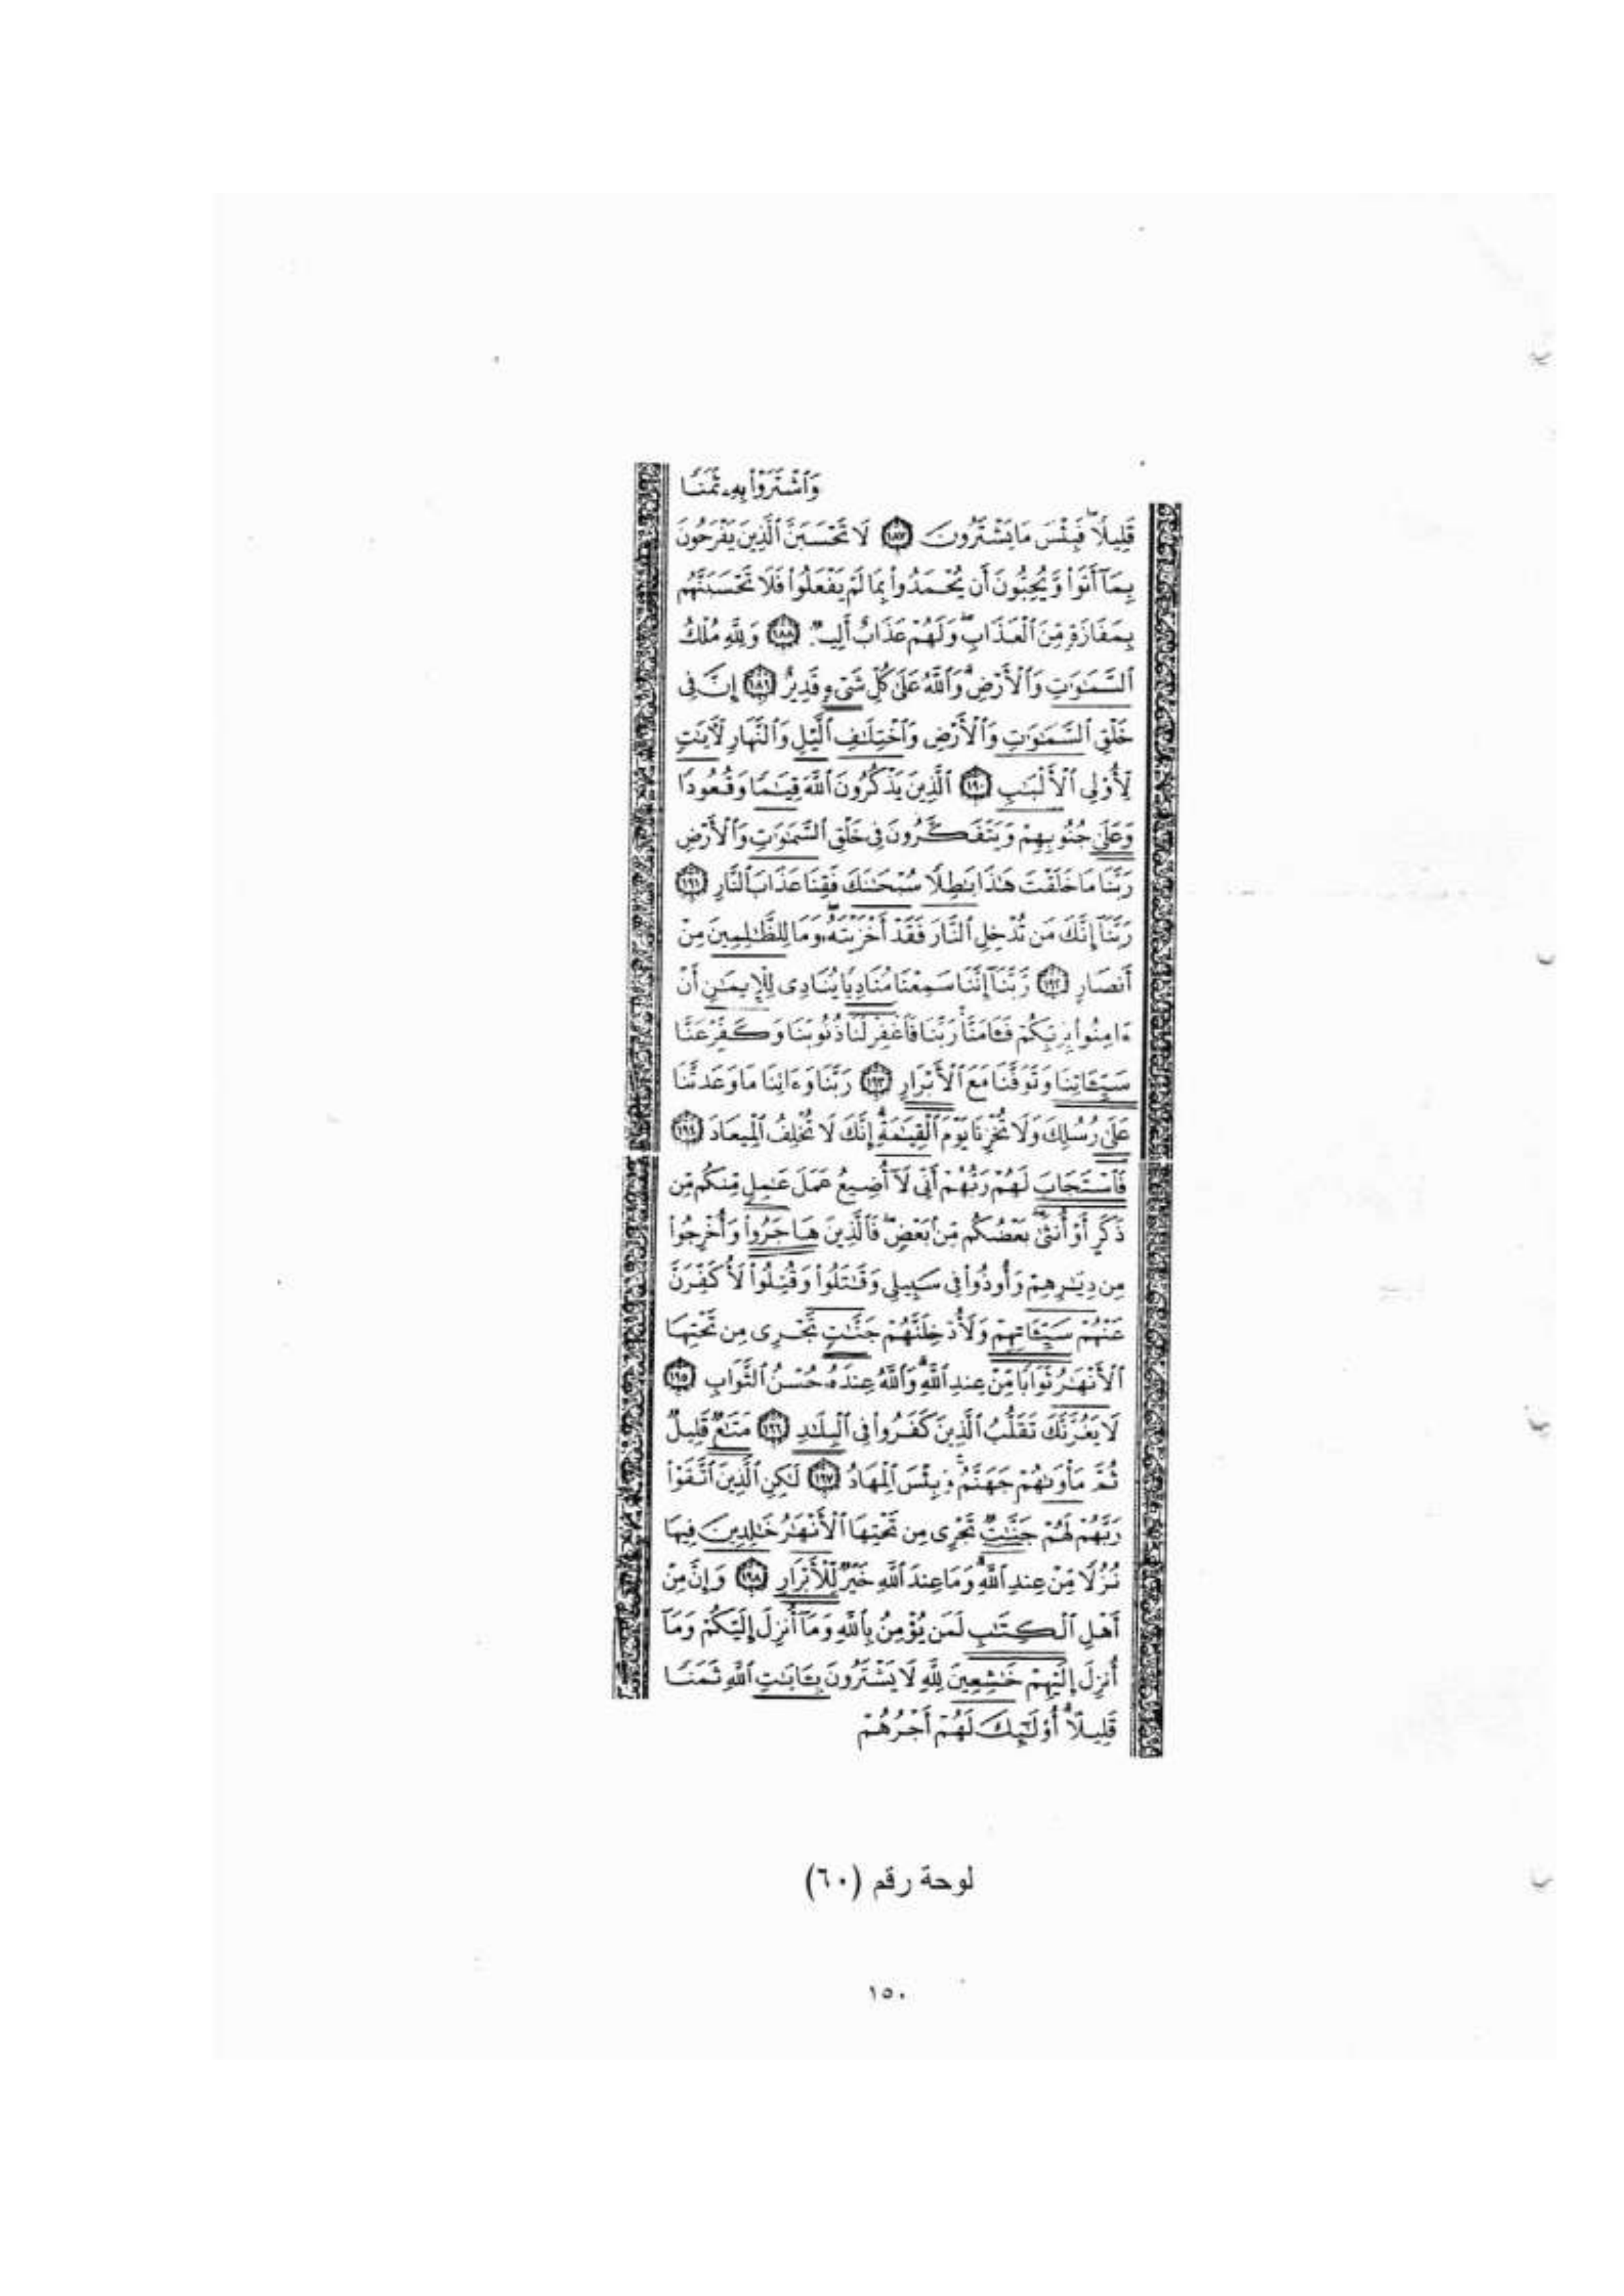 وَٱشْتَرَوْا۟ بِهِۦ ثَمَنًا
قَلِيلًا ۖ فَبِئْسَ مَا يَشْتَرُونَ ﴿١٨٧﴾ لَا تَحْسَبَنَّ ٱلَّذِينَ يَفْرَحُونَ
بِمَآ أَتَوا۟ وَّيُحِبُّونَ أَن يُحْمَدُوا۟ بِمَا لَمْ يَفْعَلُوا۟ فَلَا تَحْسَبَنَّهُم
بِمَفَازَةٍ مِّنَ ٱلْعَذَابِ ۖ وَلَهُمْ عَذَابٌ أَلِيمٌ ﴿١٨٨﴾ وَلِلَّهِ مُلْكُ
ٱلسَّمَٰوَٰتِ وَٱلْأَرْضِ ۗ وَٱللَّهُ عَلَىٰ كُلِّ شَىْءٍ قَدِيرٌ ﴿١٨٩﴾ إِنَّ فِى
خَلْقِ ٱلسَّمَٰوَٰتِ وَٱلْأَرْضِ وَٱخْتِلَٰفِ ٱلَّيْلِ وَٱلنَّهَارِ لَءَايَٰتٍ
لِّأُو۟لِى ٱلْأَلْبَٰبِ ﴿١٩٠﴾ ٱلَّذِينَ يَذْكُرُونَ ٱللَّهَ قِيَٰمًا وَقُعُودًا
وَعَلَىٰ جُنُوبِهِمْ وَيَتَفَكَّرُونَ فِى خَلْقِ ٱلسَّمَٰوَٰتِ وَٱلْأَرْضِ
رَبَّنَا مَا خَلَقْتَ هَٰذَا بَٰطِلًا سُبْحَٰنَكَ فَقِنَا عَذَابَ ٱلنَّارِ ﴿١٩١﴾
رَبَّنَآ إِنَّكَ مَن تُدْخِلِ ٱلنَّارَ فَقَدْ أَخْزَيْتَهُۥ ۖ وَمَا لِلظَّٰلِمِينَ مِنْ
أَنصَارٍ ﴿١٩٢﴾ رَّبَّنَآ إِنَّنَا سَمِعْنَا مُنَادِيًا يُنَادِى لِلْإِيمَٰنِ أَنْ
ءَامِنُوا۟ بِرَبِّكُمْ فَـَٔامَنَّا ۚ رَبَّنَا فَٱغْفِرْ لَنَا ذُنُوبَنَا وَكَفِّرْ عَنَّا
سَيِّـَٔاتِنَا وَتَوَفَّنَا مَعَ ٱلْأَبْرَارِ ﴿١٩٣﴾ رَبَّنَا وَءَاتِنَا مَا وَعَدتَّنَا
عَلَىٰ رُسُلِكَ وَلَا تُخْزِنَا يَوْمَ ٱلْقِيَٰمَةِ ۗ إِنَّكَ لَا تُخْلِفُ ٱلْمِيعَادَ ﴿١٩٤﴾
فَٱسْتَجَابَ لَهُمْ رَبُّهُمْ أَنِّى لَآ أُضِيعُ عَمَلَ عَٰمِلٍ مِّنكُم مِّن
ذَكَرٍ أَوْ أُنثَىٰ ۖ بَعْضُكُم مِّنۢ بَعْضٍ ۖ فَٱلَّذِينَ هَاجَرُوا۟ وَأُخْرِجُوا۟
مِن دِيَٰرِهِمْ وَأُوذُوا۟ فِى سَبِيلِى وَقَٰتَلُوا۟ وَقُتِلُوا۟ لَأُكَفِّرَنَّ
عَنْهُمْ سَيِّـَٔاتِهِمْ وَلَأُدْخِلَنَّهُمْ جَنَّٰتٍ تَجْرِى مِن تَحْتِهَا
ٱلْأَنْهَٰرُ ثَوَابًا مِّنْ عِندِ ٱللَّهِ ۗ وَٱللَّهُ عِندَهُۥ حُسْنُ ٱلثَّوَابِ ﴿١٩٥﴾
لَا يَغُرَّنَّكَ تَقَلُّبُ ٱلَّذِينَ كَفَرُوا۟ فِى ٱلْبِلَٰدِ ﴿١٩٦﴾ مَتَٰعٌ قَلِيلٌ
ثُمَّ مَأْوَىٰهُمْ جَهَنَّمُ ۚ وَبِئْسَ ٱلْمِهَادُ ﴿١٩٧﴾ لَٰكِنِ ٱلَّذِينَ ٱتَّقَوْا۟
رَبَّهُمْ لَهُمْ جَنَّٰتٌ تَجْرِى مِن تَحْتِهَا ٱلْأَنْهَٰرُ خَٰلِدِينَ فِيهَا
نُزُلًا مِّنْ عِندِ ٱللَّهِ ۗ وَمَا عِندَ ٱللَّهِ خَيْرٌ لِّلْأَبْرَارِ ﴿١٩٨﴾ وَإِنَّ مِنْ
أَهْلِ ٱلْكِتَٰبِ لَمَن يُؤْمِنُ بِٱللَّهِ وَمَآ أُنزِلَ إِلَيْكُمْ وَمَآ
أُنزِلَ إِلَيْهِمْ خَٰشِعِينَ لِلَّهِ لَا يَشْتَرُونَ بِـَٔايَٰتِ ٱللَّهِ ثَمَنًا
قَلِيلًا ۗ أُو۟لَٰٓئِكَ لَهُمْ أَجْرُهُمْ
لوحة رقم (٦٠)
١٥٠